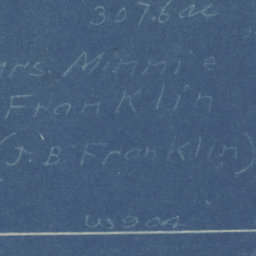 307.6 ac
Mrs. Minnie
Franklin
(J. B. Franklin)